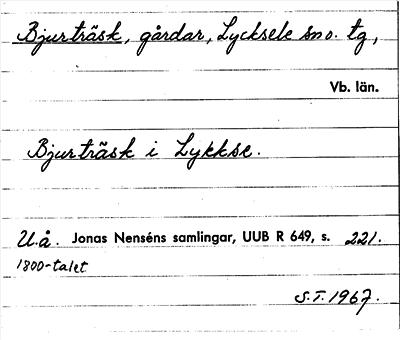 Bjurträsk, gårdar, Lycksele sno. tg,
Vb. län.
Bjurträsk i Lykkse.
U.å. Jonas Nenséns samlingar, UUB R 649, s. 221.
1800-talet
S.T. 1967.